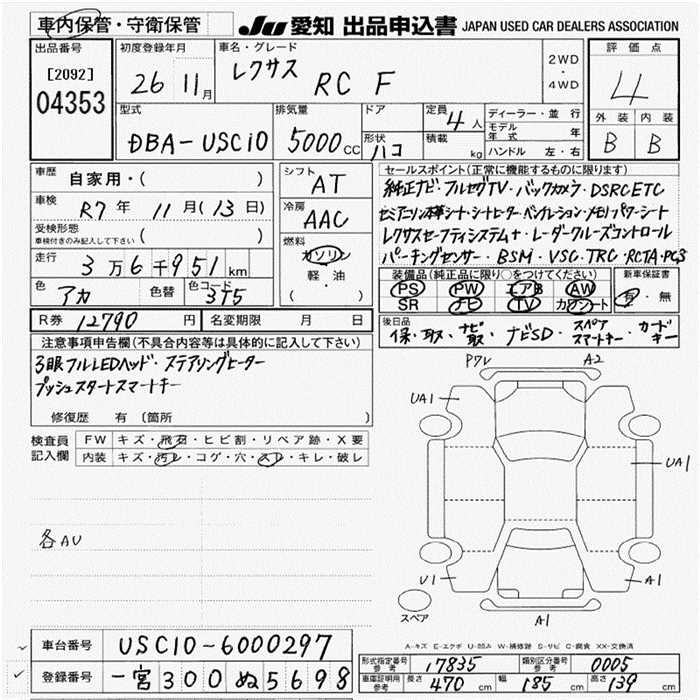 車内保管・守衛保管
JU 愛知 出品申込書 JAPAN USED CAR DEALERS ASSOCIATION
出品番号
[2092]
04353
初度登録年月
26 11月
車名・グレード
レクサス RC F
2WD
・
4WD
評価点
4
外装 内装
B B
型式
DBA-USC10
排気量
5000cc
ドア
形状
ハコ
定員
4人
積載
kg
ディーラー・並行
モデル年式 年
ハンドル 左・右
車歴 自家用・( )
車検 R7年 11月(13日)
受検形態
車検付きのみ記入して下さい ( )
走行 3万6千951km
色 アカ 色替 色コード 3T5
シフト AT
冷房 AAC
燃料
ガソリン
軽・油
( )
セールスポイント(正常に機能するものに限ります)
純正ナビ・フルセグTV・バックカメラ・DSRCETC
セミアニリン本革シート・シートヒーター・ベンチレーション・メモリパワーシート
レクサスセーフティシステム+・レーダークルーズコントロール
パーキングセンサー・BSM・VSC・TRC・RCTA・PCS
装備品(純正品に限り○をつけてください)
PS PW エアB AW
SR ナビ TV カワシート
新車保証書
有・無
R券 12790円 名変期限 月 日
後日品 保・取ス・ナビ取・ナビSD・スペアスマートキー・カードキー
注意事項申告欄(不具合内容等は具体的に記入して下さい)
3眼フルLEDヘッド・ステアリングヒーター
プッシュスタートスマートキー
修復歴 有 (箇所 )
検査員記入欄
FW キズ・飛石・ヒビ割・リペア跡・X要
内装 キズ・汚レ・コゲ・穴・スレ・キレ・破レ
各AU
PクレA2
UA1
UA1
U1
A1
A1
スペア
A-キズ E-エクボ U-凹み W-補修跡 S-サビ C-腐食 XX-交換済
車台番号 USC10-6000297
登録番号 一宮 300 ぬ 5698
形式指定番号参考 17835 類別区分番号参考 0005
車庫証明用参考 長さ 470cm 幅 185cm 高さ 139cm